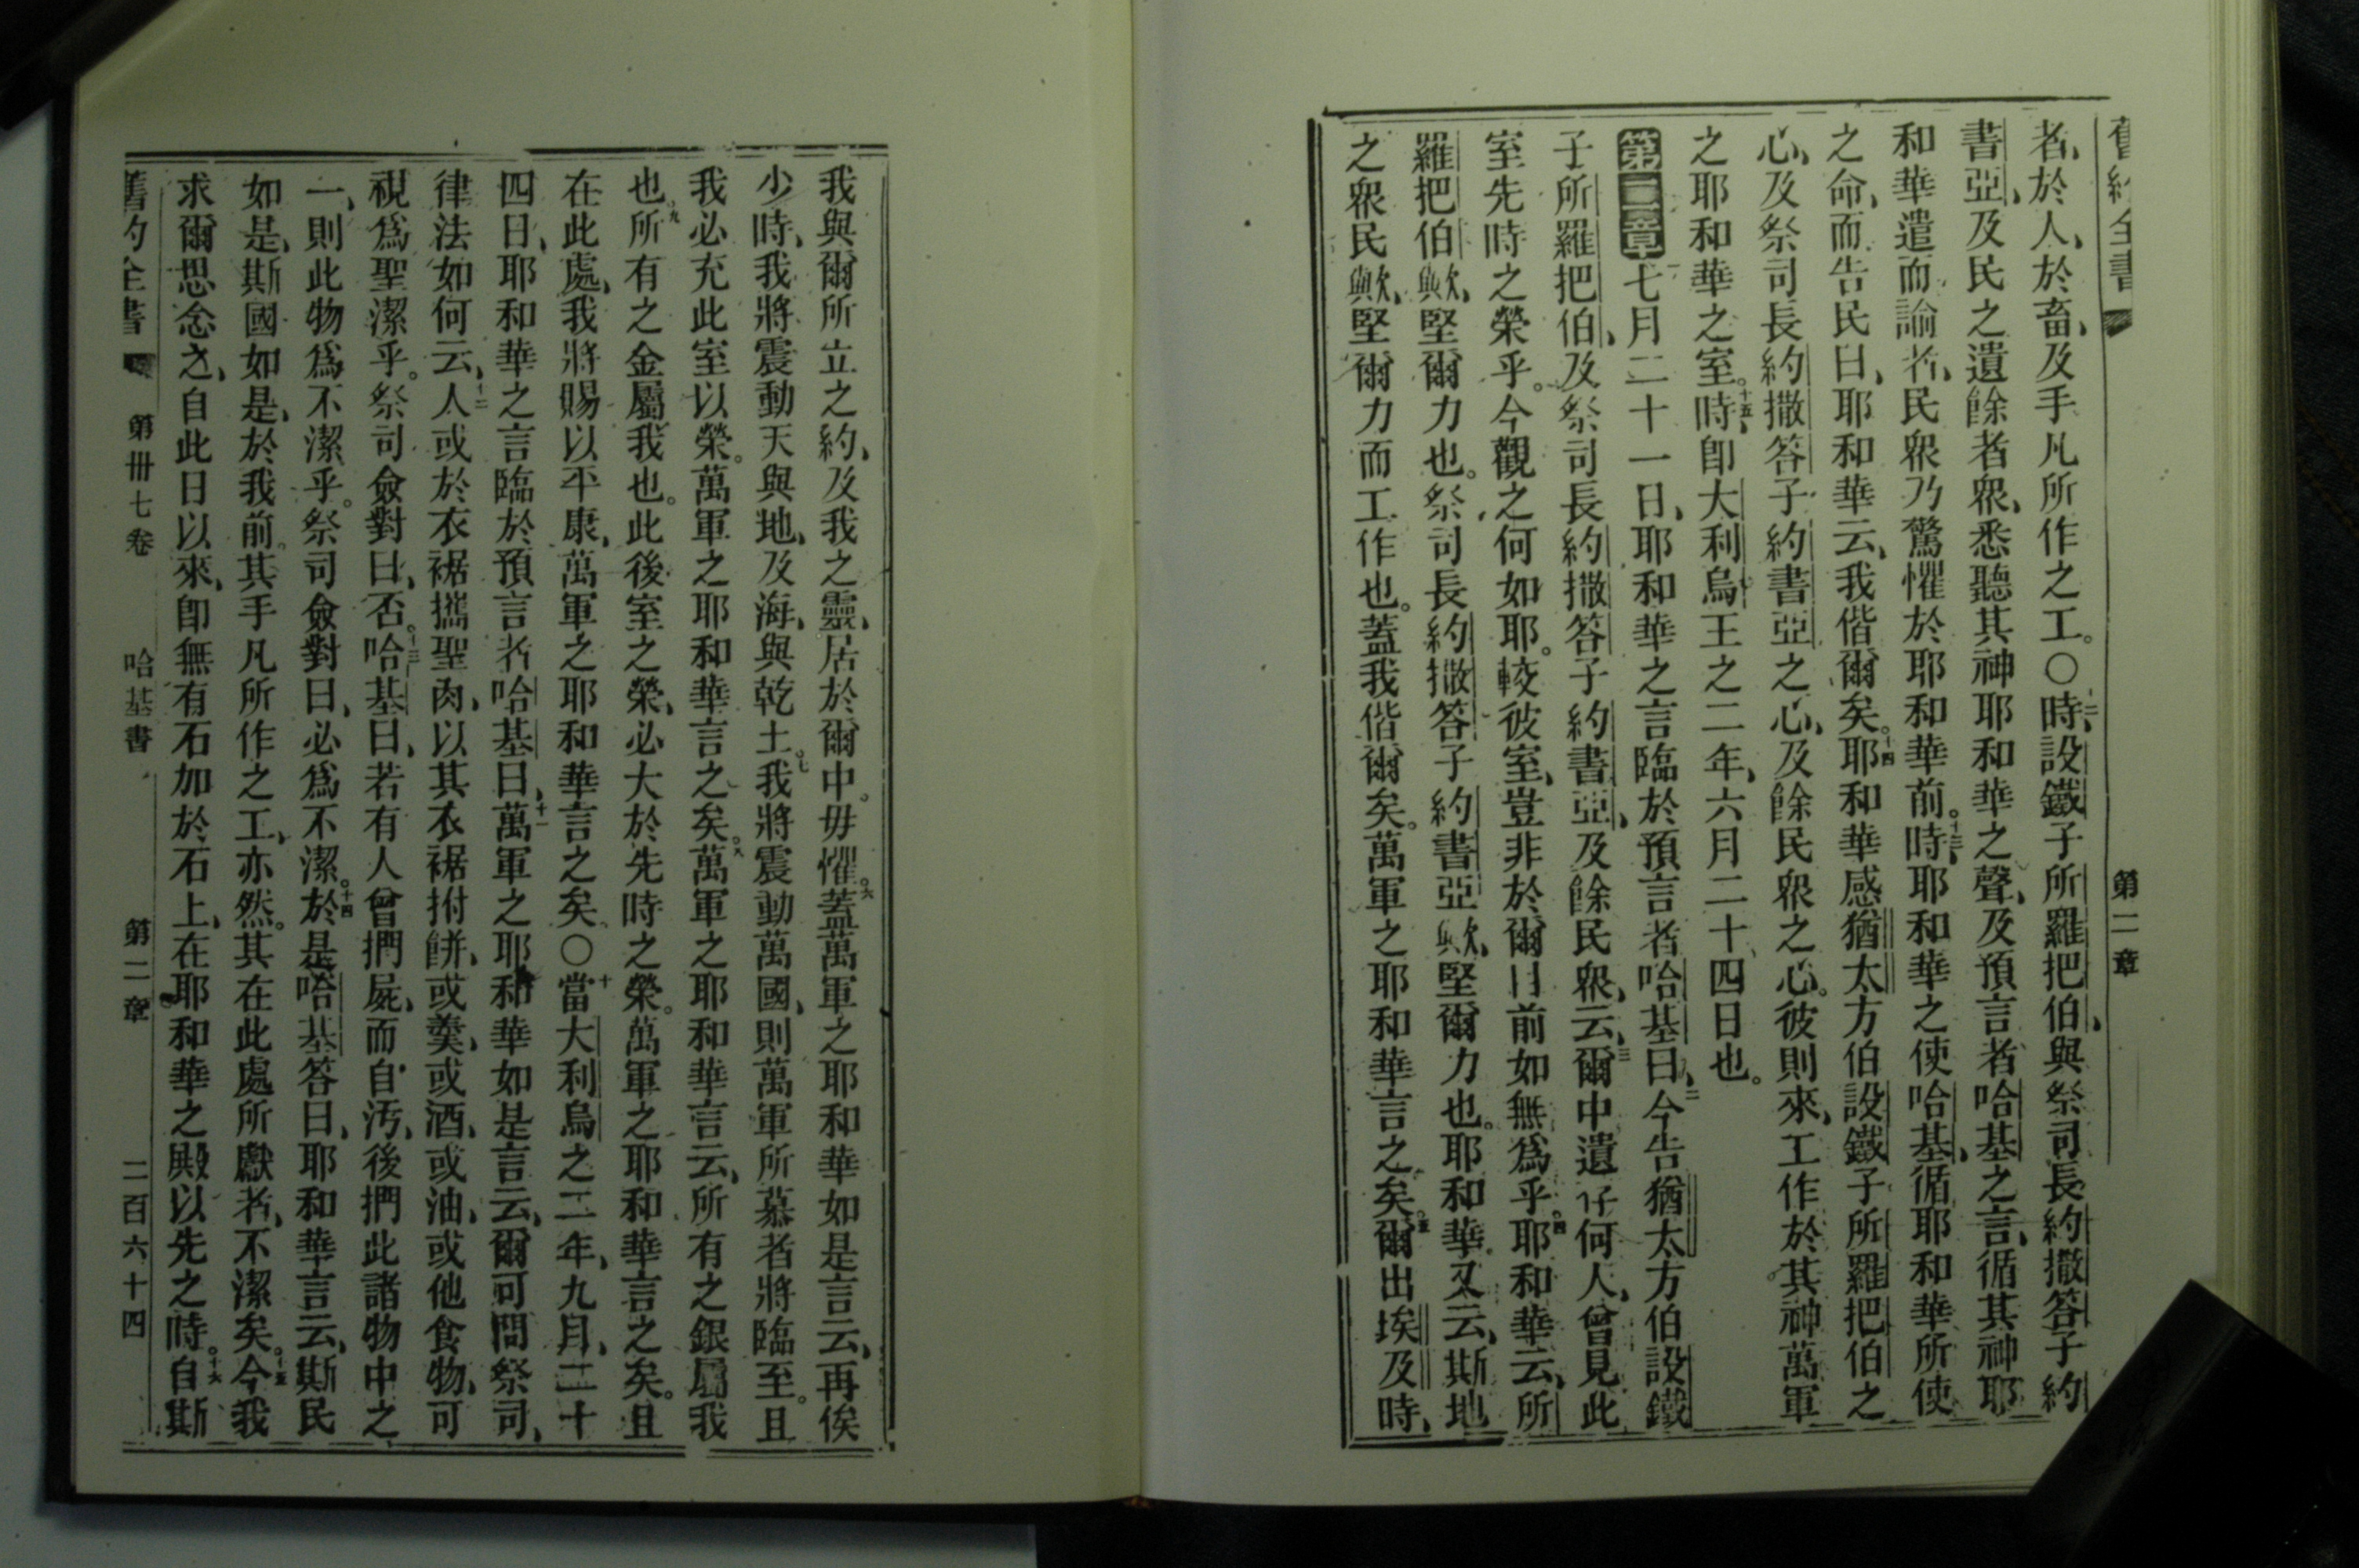 舊約全書
第二章
者、於人、於畜、及手凡所作之工。〇十二時、設鐵子所羅把伯、與祭司長約撒答子約
書亞、及民之遺餘者衆、悉聽其神耶和華之聲、及預言者哈基之言、循其神耶
和華遣而諭者、民衆乃驚懼於耶和華前。十三時、耶和華之使哈基、循耶和華所使
之命、而告民曰、耶和華云、我偕爾矣。十四耶和華感猶太方伯設鐵子所羅把伯之
心、及祭司長約撒答子約書亞之心、及餘民衆之心。彼則來、工作於其神萬軍
之耶和華之室。十五時、卽大利烏王之二年、六月二十四日也。
第二章 一七月二十一日、耶和華之言臨於預言者哈基曰、二今告猶太方伯設鐵
子所羅把伯、及祭司長約撒答子約書亞、及餘民衆、云、三爾中遺仔何人、曾見此
室先時之榮乎。今觀之何如耶。較彼室、豈非於爾目前如無爲乎。四耶和華云、所
羅把伯歟、堅爾力也。祭司長約撒答子約書亞歟、堅爾力也。耶和華又云、斯地
之衆民歟、堅爾力而工作也。蓋我偕爾矣。萬軍之耶和華言之矣。五爾出埃及時、
我與爾所立之約、及我之靈、居於爾中。毋懼。六蓋萬軍之耶和華如是言云、再俟
少時、我將震動天與地、及海、與乾土。七我將震動萬國、則萬軍所慕者將臨至。且
我必充此室以榮。萬軍之耶和華言之矣。八萬軍之耶和華言云、所有之銀屬我
也。九所有之金屬我也。此後室之榮、必大於先時之榮。萬軍之耶和華言之矣。且
在此處、我將賜以平康、萬軍之耶和華言之矣。〇十當大利烏之二年、九月、二十
四日、耶和華之言臨於預言者哈基曰、十一萬軍之耶和華如是言云、爾可問祭司、
律法如何云、十二人或於衣裾攜聖肉、以其衣裾拊餅、或羹、或酒、或油、或他食物、可
視爲聖潔乎。祭司僉對曰、否。十三哈基曰、若有人曾捫屍、而自汚、後捫此諸物中之
一、則此物爲不潔乎。祭司僉對曰、必爲不潔。十四於是哈基答曰、耶和華言云、斯民
如是、斯國如是、於我前。其手凡所作之工、亦然。其在此處所獻者、不潔矣。十五今我
求爾思念之、自此日以來、卽無有石加於石上、在耶和華之殿以先之時。十六自斯
舊約全書
第卅七卷
哈基書
第二章
二百六十四